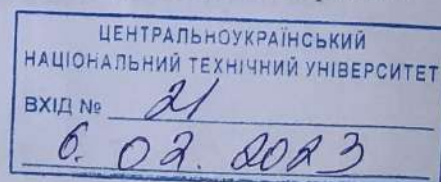 ЦЕНТРАЛЬНОУКРАЇНСЬКИЙ
НАЦІОНАЛЬНИЙ ТЕХНІЧНИЙ УНІВЕРСИТЕТ
ВХІД № 21
6. 02. 2023